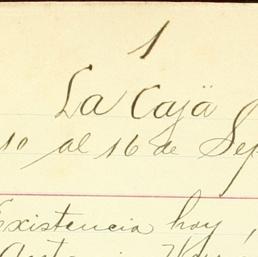 1
La Caja
10 al 16 de Sep
Existencia hoy,